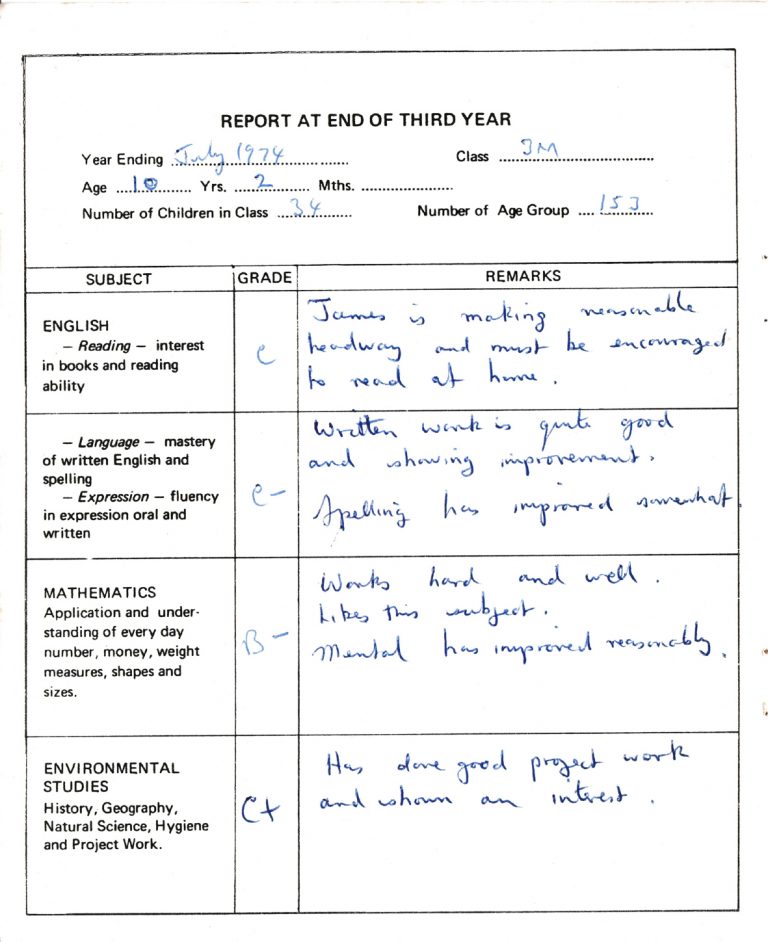 REPORT AT END OF THIRD YEAR
Year Ending July 1974 Class 3M
Age 10 Yrs. 2 Mths.
Number of Children in Class 34 Number of Age Group 153
SUBJECT GRADE REMARKS
ENGLISH
— Reading — interest
in books and reading
ability
C
James is making reasonable
headway and must be encouraged
to read at home.
— Language — mastery
of written English and
spelling
— Expression — fluency
in expression oral and
written
C-
Written work is quite good
and showing improvement.
Spelling has improved somewhat.
MATHEMATICS
Application and under-
standing of every day
number, money, weight
measures, shapes and
sizes.
B-
Works hard and well.
Likes this subject.
Mental has improved reasonably.
ENVIRONMENTAL
STUDIES
History, Geography,
Natural Science, Hygiene
and Project Work.
C+
Has done good project work
and shown an interest.